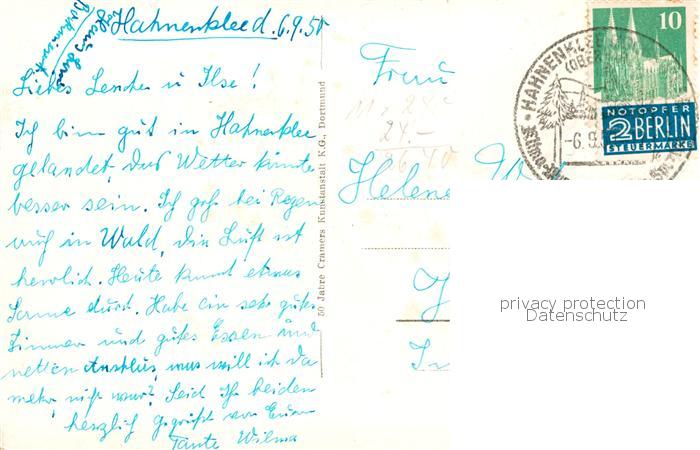 Hahnenklee d. 6.9.50
Liebes Lenchen u Ilse!
Ich bin gut in Hahnenklee
gelandet, das Wetter könnte
besser sein. Ich geh bei Regen
auch in Wald, die Luft ist
herrlich. Heute kommt etwas
Sonne durch. Habe ein sehr gutes
Zimmer und gutes Essen und
netten Anschluss, was will ich da
mehr, nicht wahr? Seid Ihr beiden
herzlich gegrüßt von Eurer
Tante Wilma
50 Jahre Cramers Kunstanstalt K.G., Dortmund
Frau
24.-
Helene
J
In
10
HAHNENKLEE
-6.9.
NOTOPFER
2 BERLIN
STEUERMARKE
privacy protection
Datenschutz